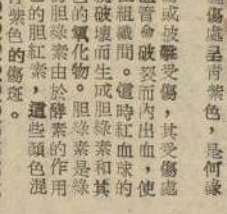 傷處呈青紫色，是何緣
傷或被擊受傷，其受傷處
血管會破裂而內出血，使
組織間。這時紅血球的
破壞而生成胆綠素和其
色的氧化物。胆綠素是綠
胆綠素由於酵素的作用
色的胆紅素，這些顏色混
青紫色的傷斑。